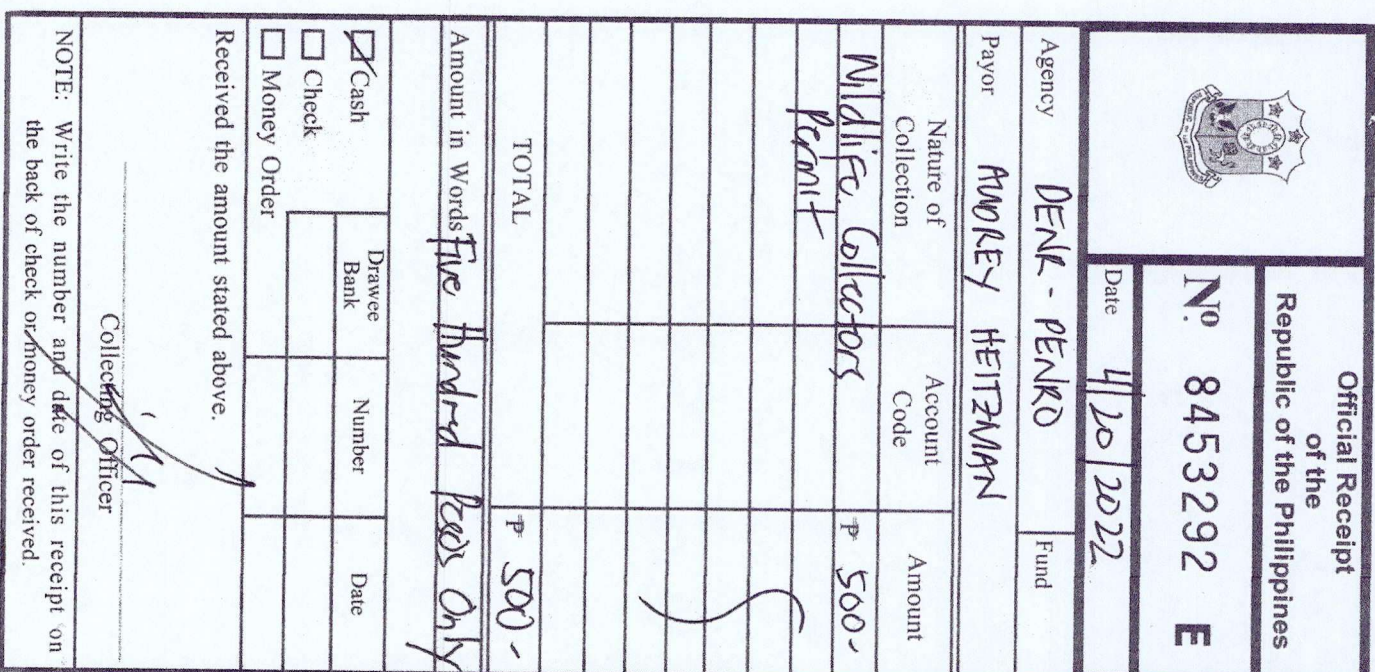 Official Receipt
of the
Republic of the Philippines
Nº 8453292 E
Date 4/20/2022
Agency DENR - PENRO
Fund
Payor AUDREY HEITZMAN
Nature of Collection
Account Code
Amount
Wildlife Collectors ₱ 500-
Permit
TOTAL ₱ 500-
Amount in Words Five Hundred Pesos Only
Cash
Check
Money Order
Drawee Bank
Number
Date
Received the amount stated above.
Collecting Officer
NOTE: Write the number and date of this receipt on
the back of check or money order received.